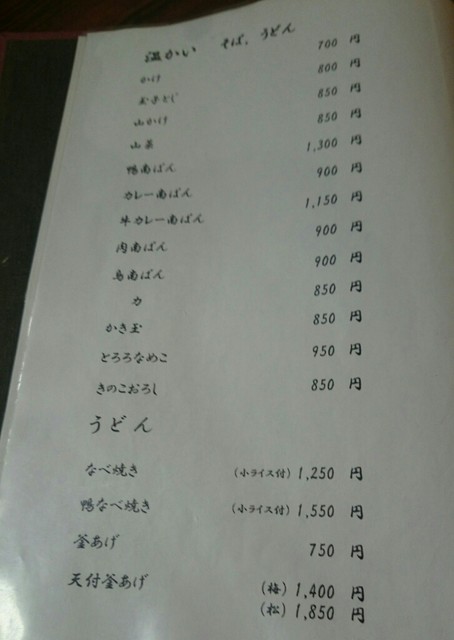 温かい そば、うどん
かけ 700 円
玉子とじ 800 円
山かけ 850 円
山菜 850 円
鴨南ばん 1,300 円
カレー南ばん 900 円
牛カレー南ばん 1,150 円
肉南ばん 900 円
鳥南ばん 900 円
力 850 円
かき玉 850 円
とろろなめこ 950 円
きのこおろし 850 円
うどん
なべ焼き (小ライス付) 1,250 円
鴨なべ焼き (小ライス付) 1,550 円
釜あげ 750 円
天付釜あげ (梅) 1,400 円
(松) 1,850 円